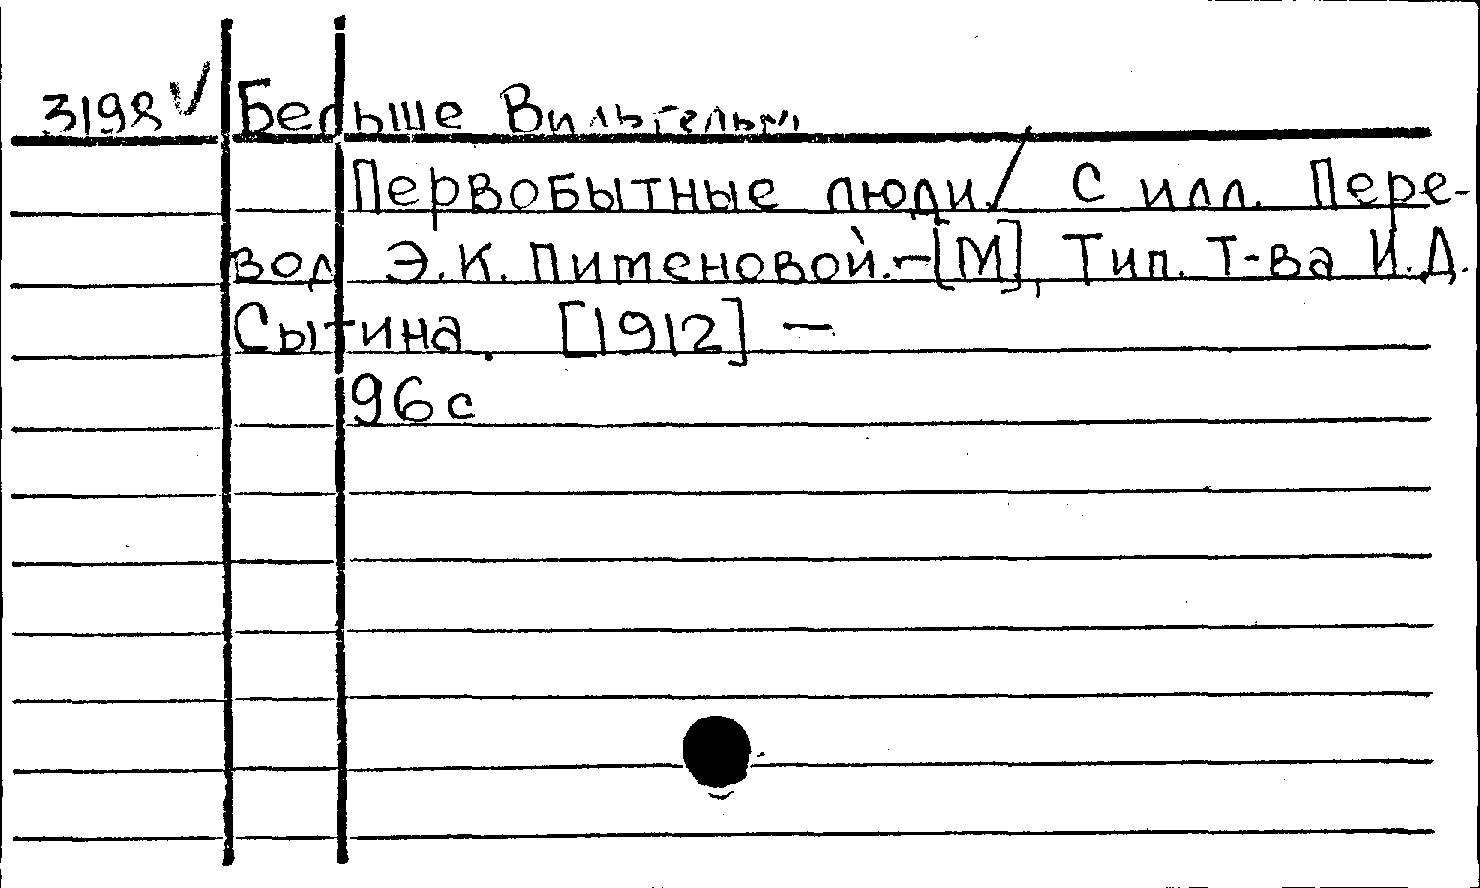 3198 V Бельше Вильгельм
Первобытные люди./ С илл. Пере-
вод Э.К. Пименовой.-[М], Тип. Т-ва И.Д.
Сытина. [1912] —
96 с